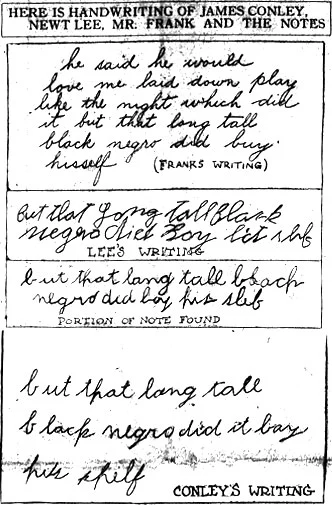 HERE IS HANDWRITING OF JAMES CONLEY,
NEWT LEE, MR. FRANK AND THE NOTES
he said he would
love me laid down play
like the night which did
it but that long tall
black negro did buy
hisself (FRANKS WRITING)
But that Long tall Black
negro did Boy hit slef
LEE'S WRITING
but that long tall black
negro did boy his slef
PORTION OF NOTE FOUND
but that long tall
black negro did it bay
his shelf
CONLEY'S WRITING